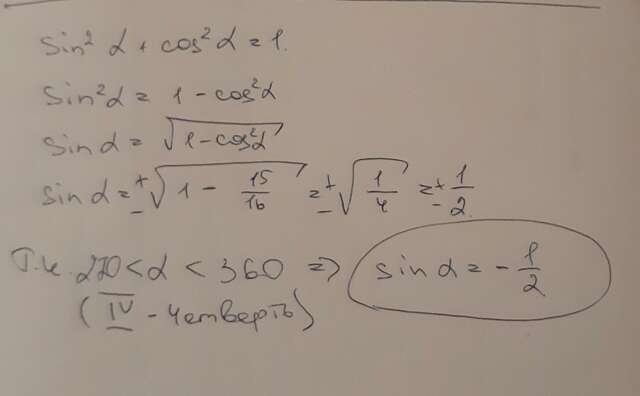 sin² α + cos² α = 1.
sin² α = 1 - cos² α
sin α = √(1 - cos² α)
sin α = ± √(1 - 15/16) = ± √(1/4) = ± 1/2.
Т.к. 270 < α < 360 => sin α = - 1/2
(IV - четверть)